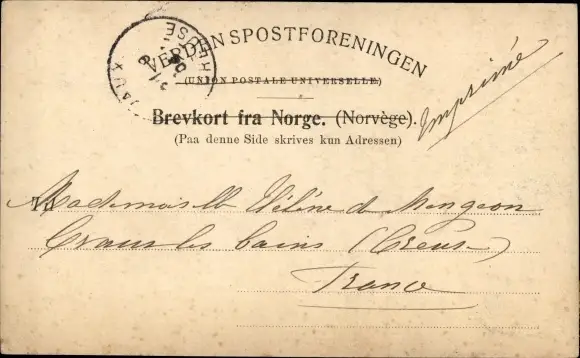 VERDENSPOSTFORENINGEN
(UNION POSTALE UNIVERSELLE.)
Brevkort fra Norge. (Norvège).
(Paa denne Side skrives kun Adressen)
Imprimé
Til
Mademoiselle Hélène de Mongeon
les bains (Creuse)
France